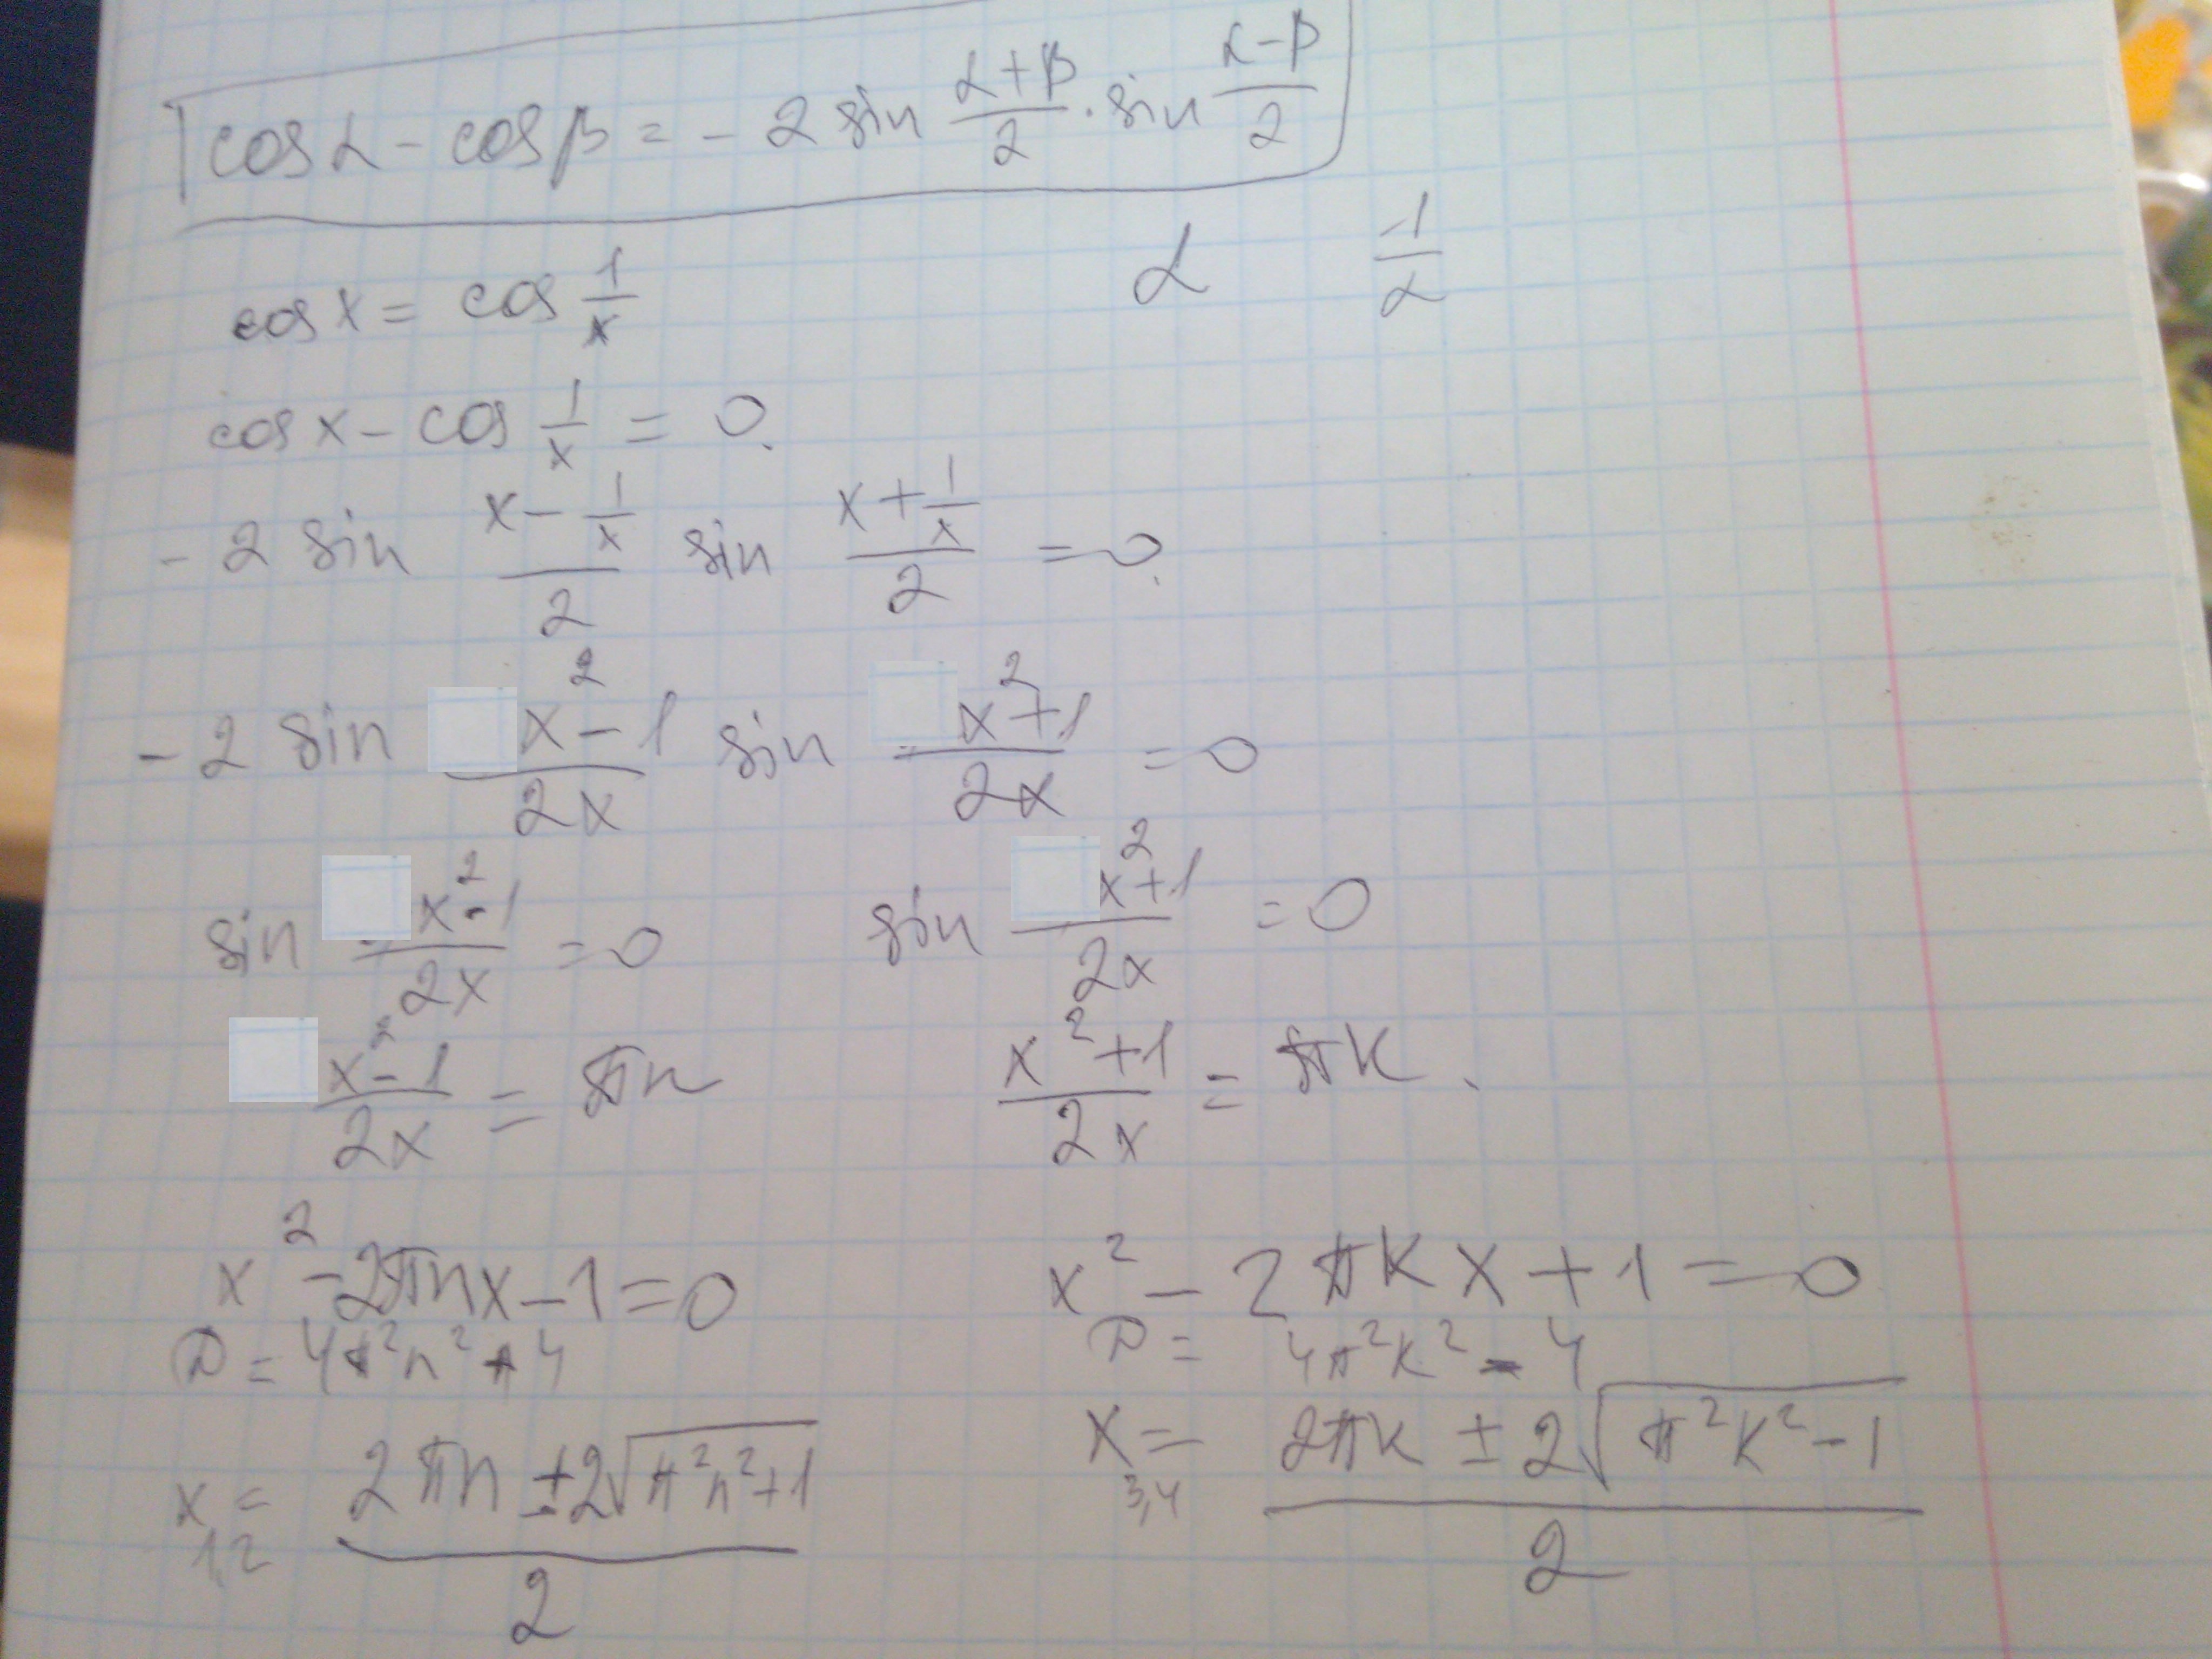 cos α - cos β = - 2 sin (α+β)/2 · sin (α-β)/2
α -1/α
cos x = cos 1/x
cos x - cos 1/x = 0.
- 2 sin (x - 1/x)/2 sin (x + 1/x)/2 = 0.
- 2 sin (x² - 1)/2x sin (x² + 1)/2x = 0
sin (x² - 1)/2x = 0 sin (x² + 1)/2x = 0
(x² - 1)/2x = πn (x² + 1)/2x = πk.
x² - 2πnx - 1 = 0 x² - 2πkx + 1 = 0
D = 4π²n² + 4 D = 4π²k² - 4
x₁,₂ = (2πn ± 2√(π²n² + 1))/2 x₃,₄ = (2πk ± 2√(π²k² - 1))/2